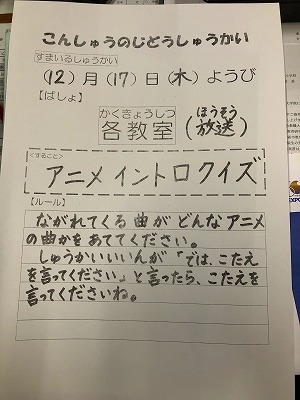 こんしゅうのじどうしゅうかい
すまいるしゅうかい
(12)月(17)日(木)ようび
【ばしょ】
かくきょうしつ
各教室
ほうそう
(放送)
<すること>
アニメイントロクイズ
【ルール】
ながれてくる曲がどんなアニメ
の曲かをあててください。
しゅうかいいいんが「では、こたえ
を言ってください」と言ったら、こたえを
言ってくださいね。